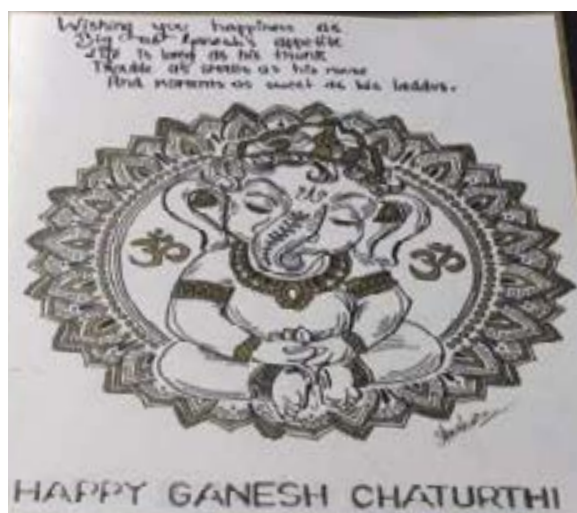 Wishing you happiness as
Big as Ganesh's appetite
Life is long as his trunk
Trouble as small as his mouse
And moments as sweet as his laddus.
ॐ ॐ
HAPPY GANESH CHATURTHI